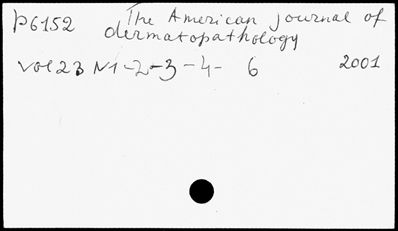 P6152 The American journal of
dermatopathology
vol 23 N1-2-3-4- 6 2001